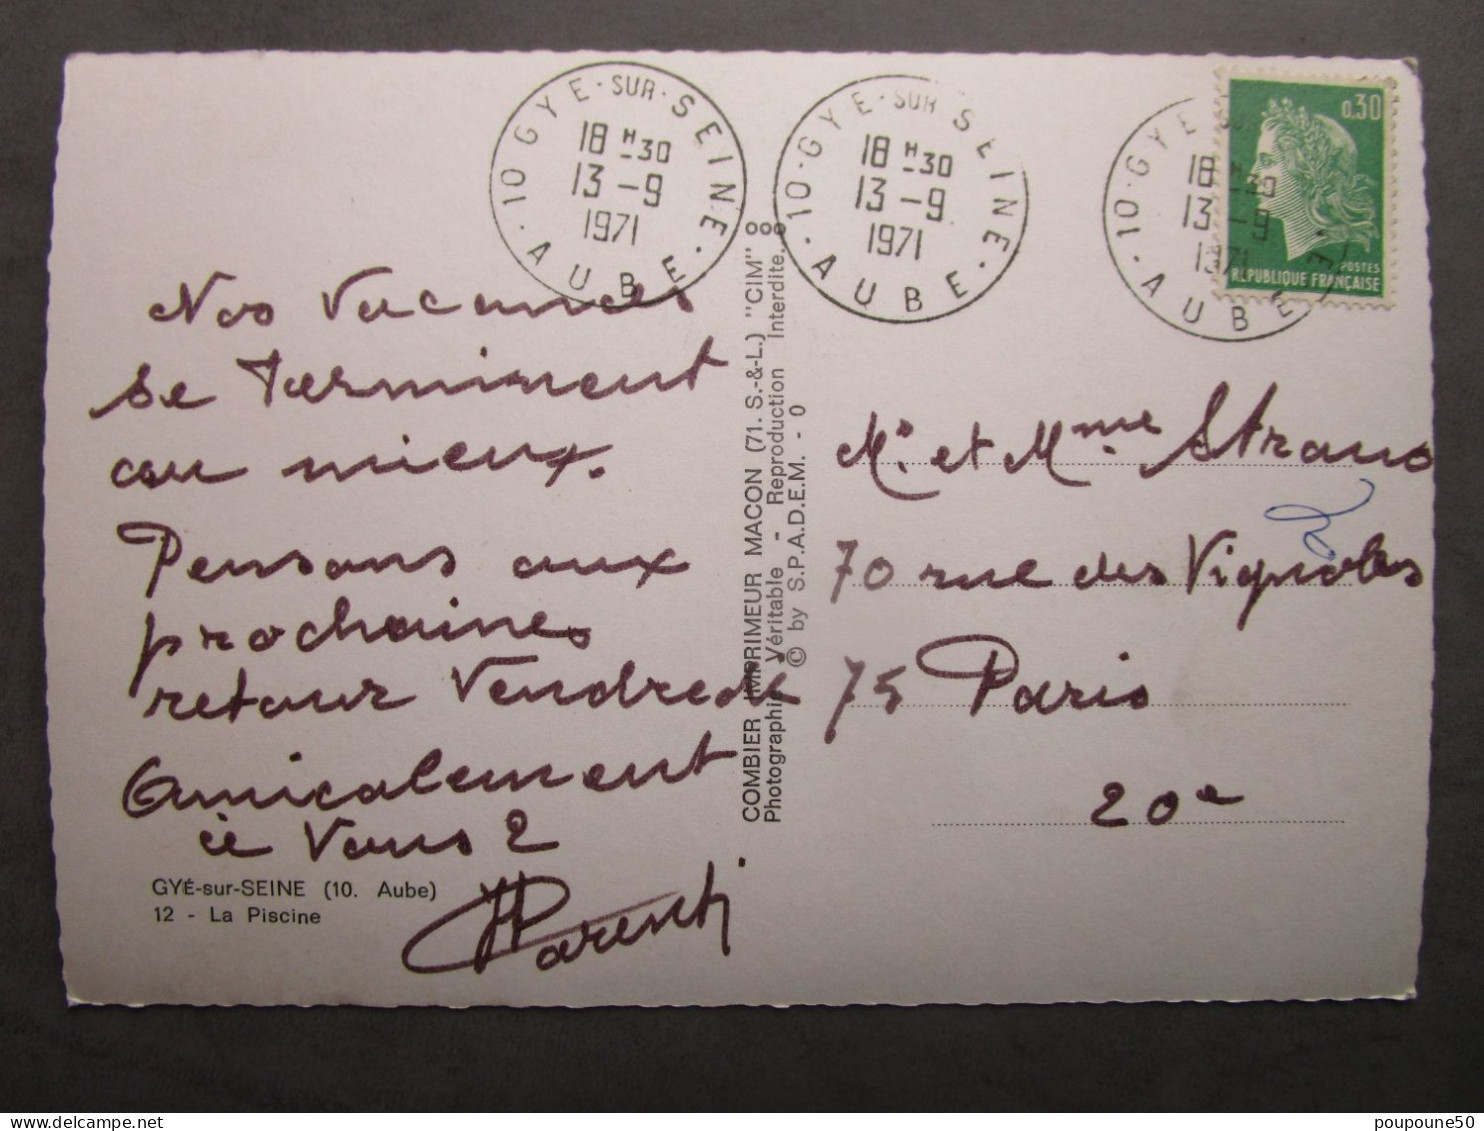 10 GYE-SUR-SEINE
18 H -30
13 -9
1971
AUBE
10 GYE-SUR-SEINE
18 H -30
13 -9
1971
AUBE
10 GYE SUR
18 H -30
13 -9
1971
AUBE
0,30
POSTES
REPUBLIQUE FRANÇAISE
Nos Vacances
se terminent
au mieux.
Pensons aux
prochaines
retour Vendredi
Amicalement
à Vous 2
Parenti
GYÉ-sur-SEINE (10. Aube)
12 - La Piscine
COMBIER IMPRIMEUR MACON (71. S.-&-L.) "CIM"
Photographie Véritable - Reproduction Interdite.
© by S.P.A.D.E.M. - 0
Mr. et Mme Strano
70 rue des Vignoles
75 Paris
20e
poupoune50